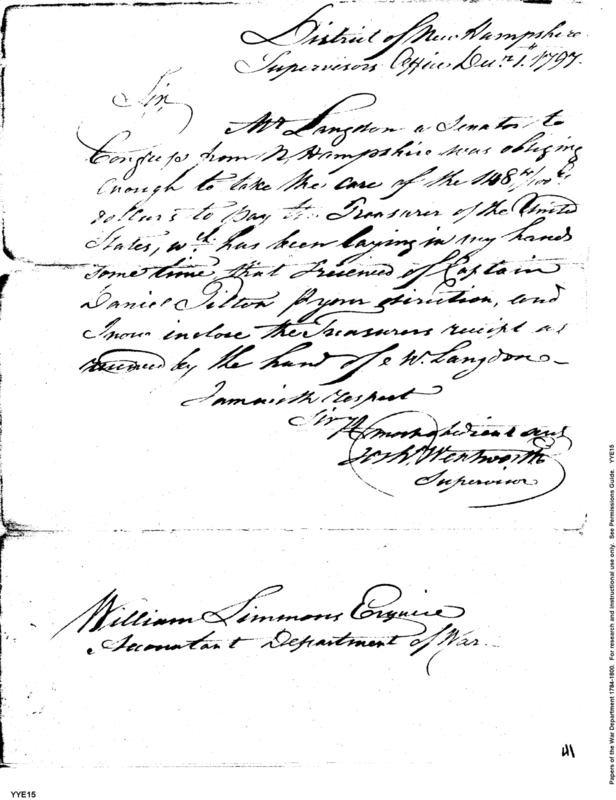 District of New Hampshire
Supervisors Office Decr. 1st. 1797.
Sir,
Mr. Langdon a Senator to
Congress from N Hampshire was obliging
enough to take the care of the 148 /100
dollars to pay the Treasurer of the United
States, wch. has been laying in my hands
some time that I received of Captain
Daniel Tilton pr your direction, and
I now inclose the Treasurers receipt as
received by the hand of Mr. Langdon—
I am with respect
Sir
Yr most obedient
Josh. Wentworth
Supervisor
William Simmons Esquire
Accountant Department of War.
41
YYE15
Papers of the War Department 1784-1800. For research and instructional use only. See Permissions Guide. YYE15